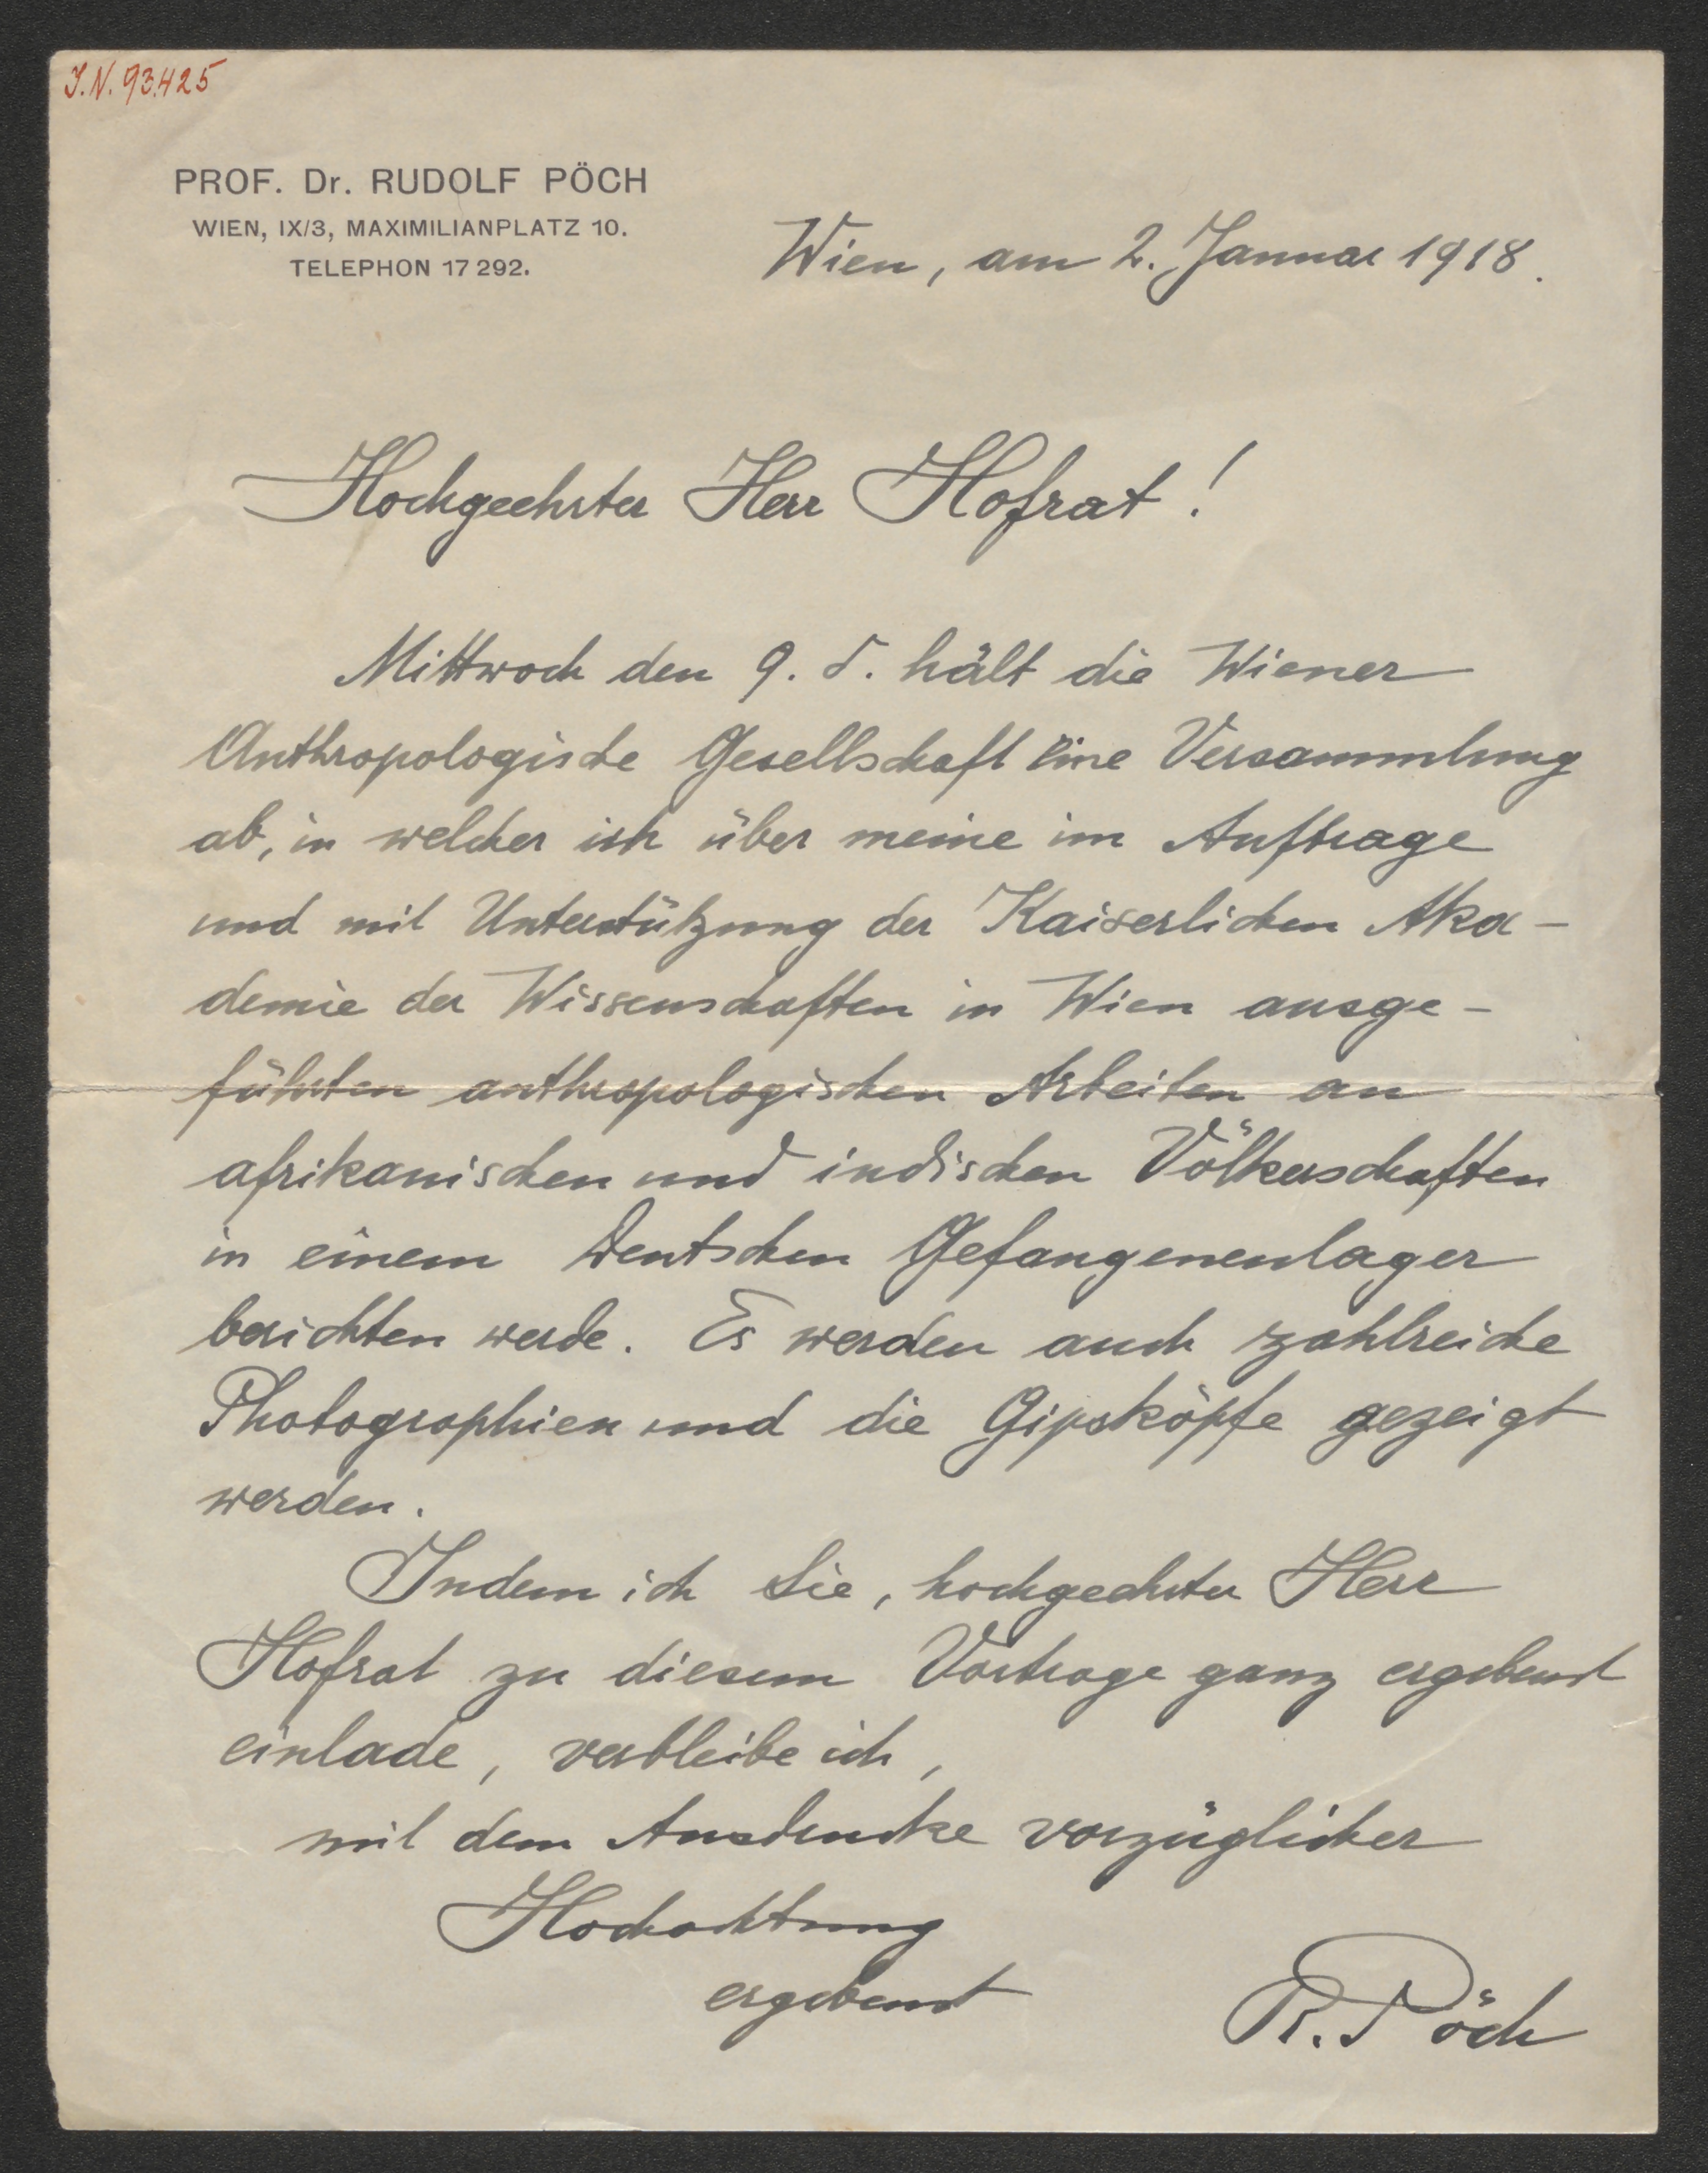 J.N. 93.425
PROF. Dr. RUDOLF PÖCH
WIEN, IX/3, MAXIMILIANPLATZ 10.
TELEPHON 17 292.
Wien, am 2. Januar 1918.
Hochgeehrter Herr Hofrat!
Mittwoch den 9. d. hält die Wiener
Anthropologische Gesellschaft eine Versammlung
ab, in welcher ich über meine im Auftrage
und mit Unterstützung der Kaiserlichen Aka-
demie der Wissenschaften in Wien ausge-
führten anthropologischen Arbeiten an
afrikanischen und indischen Völkerschaften
in einem Deutschen Gefangenenlager
berichten werde. Es werden auch zahlreiche
Photographien und die Gipsköpfe gezeigt
werden.
Indem ich Sie, hochgeehrter Herr
Hofrat zu diesem Vortrage ganz ergebenst
einlade, verbleibe ich,
mit dem Ausdrucke vorzüglicher
Hochachtung
ergebenst
R. Pöch